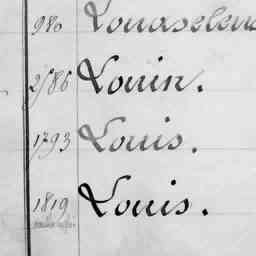 980 Louaselous
2586 Louin.
1793 Louis.
1819 Louis.